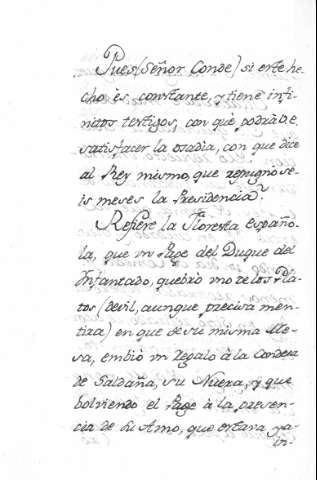 Pues (Señor Conde) si este he-
cho es constante, y tiene infi-
nitos testigos, con què podrà V.E.
satisfacer la osadìa, con que dice
al Rey mismo, que repugnò se-
is meses la Presidencia?
Refiere la Floresta Españo-
la, que un Page del Duque del
Infantado, quebrò uno de los Pla-
tos (devil, aunque precisa men-
tira) en que de su misma Me-
sa, embiò un regalo à la Condesa
de Saldaña, su Nuera, y que
bolviendo el Page à la presen-
cia de su Amo, que estava ya
in-